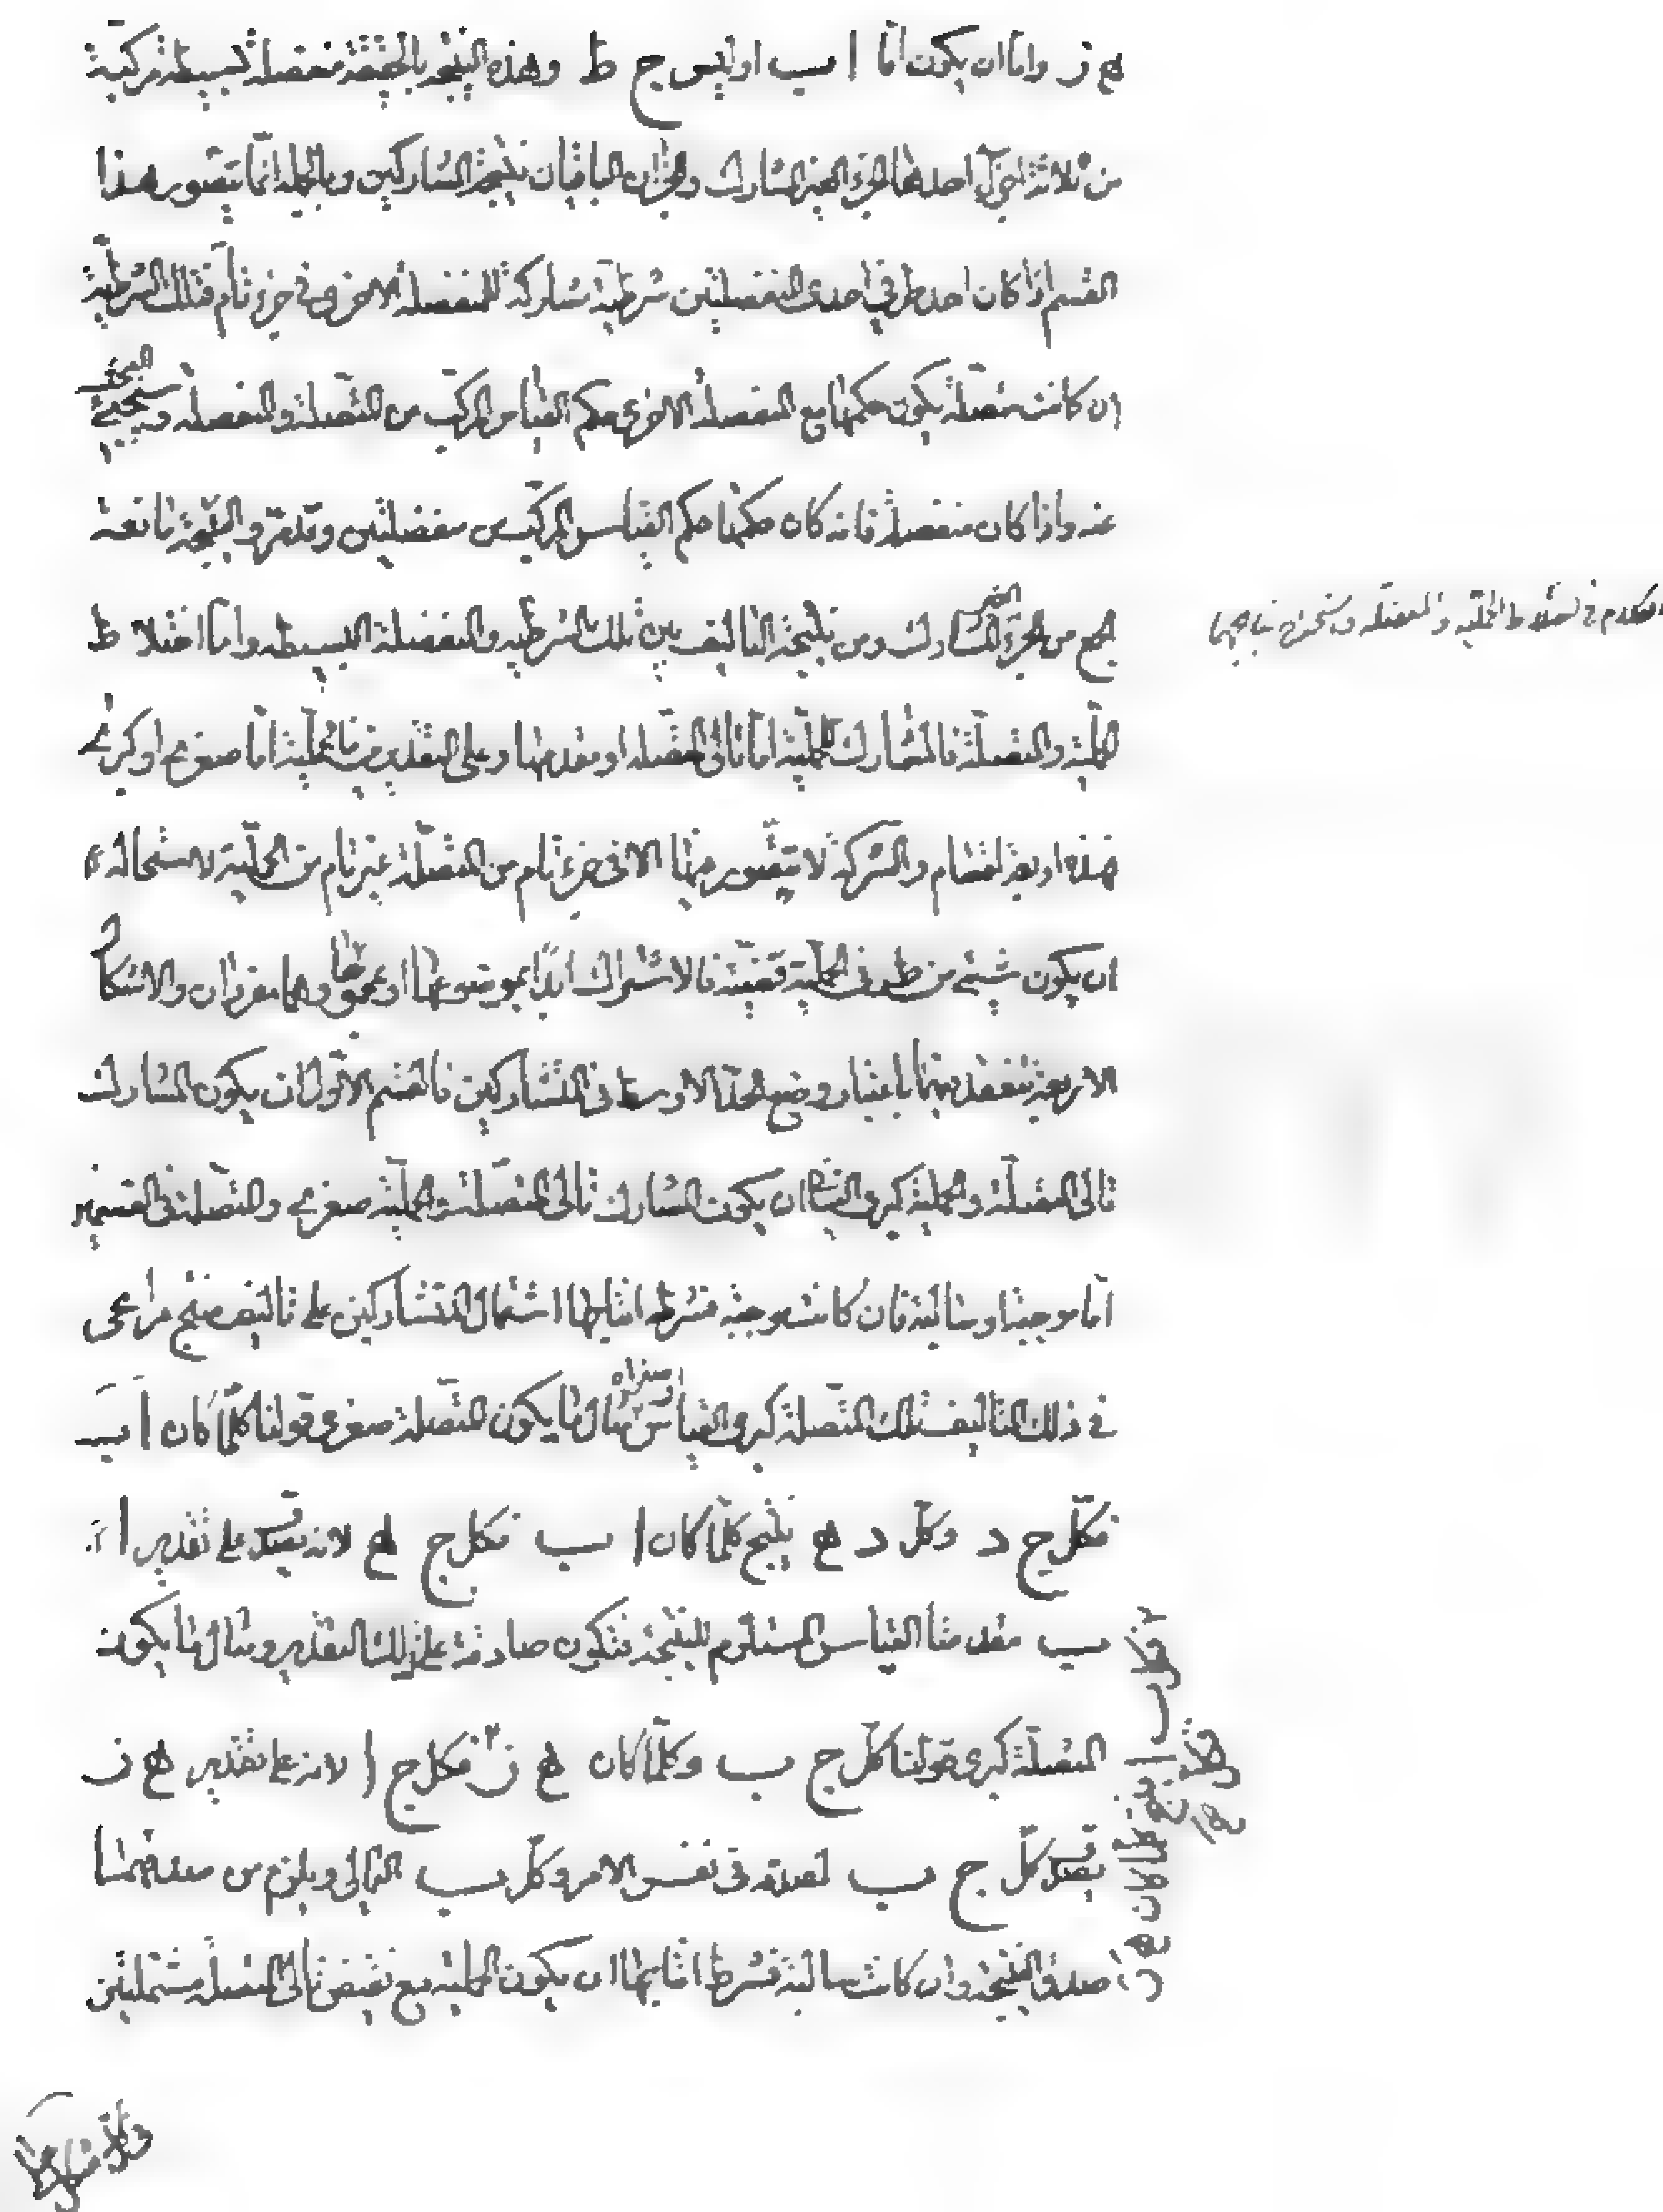 ه ز واما ان يكون اما ا ب او ليس ج ط وهذه النتيجة بالحقيقة منفصلة بسيطة مركبة
من ثلاثة اجزاء احدها الجزء الغير المشارك والجزءان الباقيان نتيجة المشاركين وبالجملة انما يتصور هذا
القسم اذا كان احد طرفي احدى المنفصلتين شرطية مشاركة للمنفصلة الاخرى في جزء تام فتلك الشرطية
ان كانت متصلة يكون حكمها مع المنفصلة الاخرى حكم القياس المركب من المتصلة والمنفصلة وسيجيئ البحث
عنه واذا كان منفصلة فانه كان حكمها حكم القياس المركب من منفصلتين وقد مر والنتيجة مانعة
الجمع من الجزء الغير المشارك ومن نتيجة التاليف بين تلك الشرطية والمنفصلة البسيطة واما اختلاط
الحملية والمتصلة فالمشارك للحملية اما تالى المتصلة او مقدمها وعلى التقديرين فالحملية اما صغرى او كبرى
فهذه اربعة اقسام والشركة لا يتصور منها الا فى جزء تام من المتصلة غير تام من الحملية لاستحالة
ان يكون شيئ من طرفى الحملية قضية فالاشتراك ابدا بموضوعها او بمحمولها وهما مفردان والاشكال
الاربعة تنعقد بينهما باعتبار وضع الحد الاوسط فى المتشاركين فالقسم الاول ان يكون المشارك
تالى المتصلة والحملية كبرى الثانى ان يكون المشارك تالى المتصلة والحملية صغرى والمتصلة فى القسمين
اما موجبة او سالبة فان كانت موجبة فشرط انتاجها اشتمال المتشاركين على تاليف منتج
فى ذلك التاليف تلك المتصلة كبرى القياس او صغراه مثال ما يكون المتصلة صغرى قولنا كلما كان ا ب
فكل ج د وكل د ه ينتج كلما كان ا ب فكل ج ه لانه يصدق على تقدير ا
ب مقدمتا القياس المستلزم للنتيجة فتكون صادقة على ذلك التقدير ومثال ما يكون
المتصلة كبرى قولنا كل ج ب وكلما كان ه ز فكل ج ا لانه على تقدير ه ز
فكل ب ا ينتج كلما كان ه ز
يصدق كل ج ب لصدقه فى نفس الامر وكل ب التالى ويلزم من صدقهما
صدق النتيجة وان كانت سالبة فشرط انتاجها ان يكون الحملية مع نقيض تالى المتصلة مشتملتين